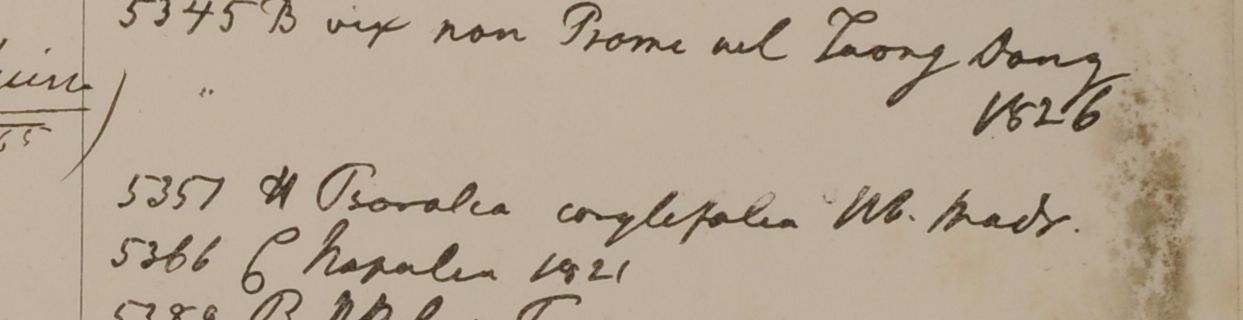 5345 B vix non Prome vel Taong Dong
1826
"
5351 H Psoralea corylifolia Hb. Madr.
5366 6 Napalea 1821
5389 B